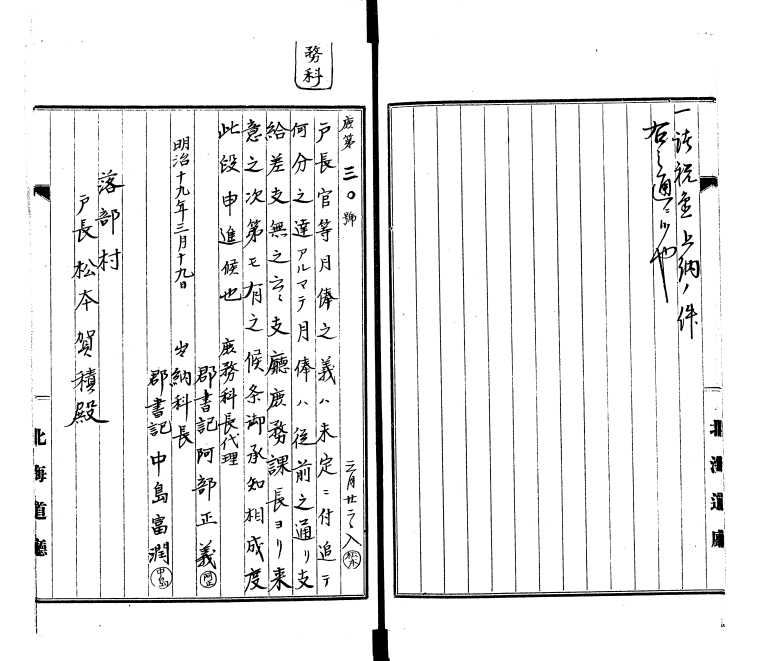 一諸税金上納ノ件
右之通ニ候也
北海道廳
務科
庶第三〇號
三月廿三日入 松本
戸長官等月俸之義ハ未定ニ付追テ
何分之達アルマテ月俸ハ従前之通リ支
給差支無之云々支廳庶務課長ヨリ来
意之次第モ有之候条御承知相成度
此段申進候也
庶務科長代理
郡書記阿部正義
明治十九年三月十九日
出納科長
郡書記中島富潤 中島
落部村
戸長松本賀積殿
北海道廳